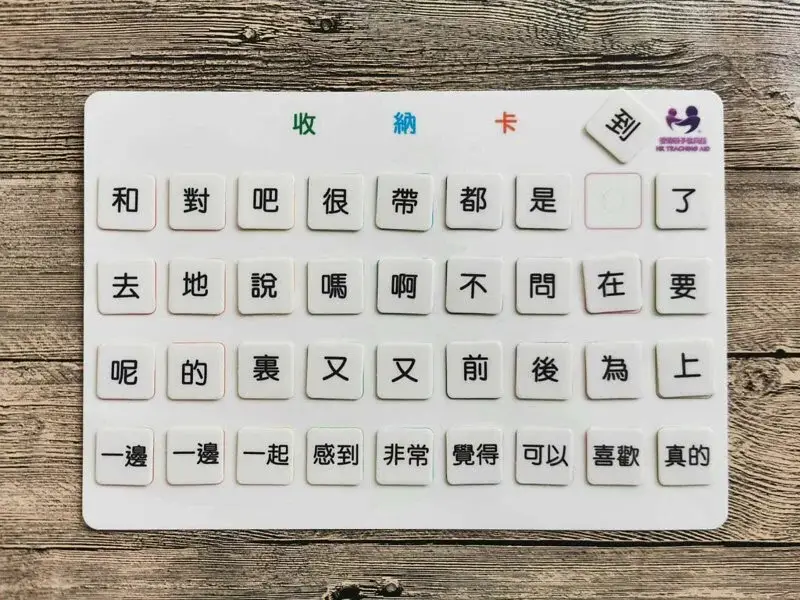 收納卡
到
HK TEACHING AID
和 對 吧 很 帶 都 是 了
去 地 說 嗎 啊 不 問 在 要
呢 的 裏 又 又 前 後 為 上
一邊 一邊 一起 感到 非常 覺得 可以 喜歡 真的